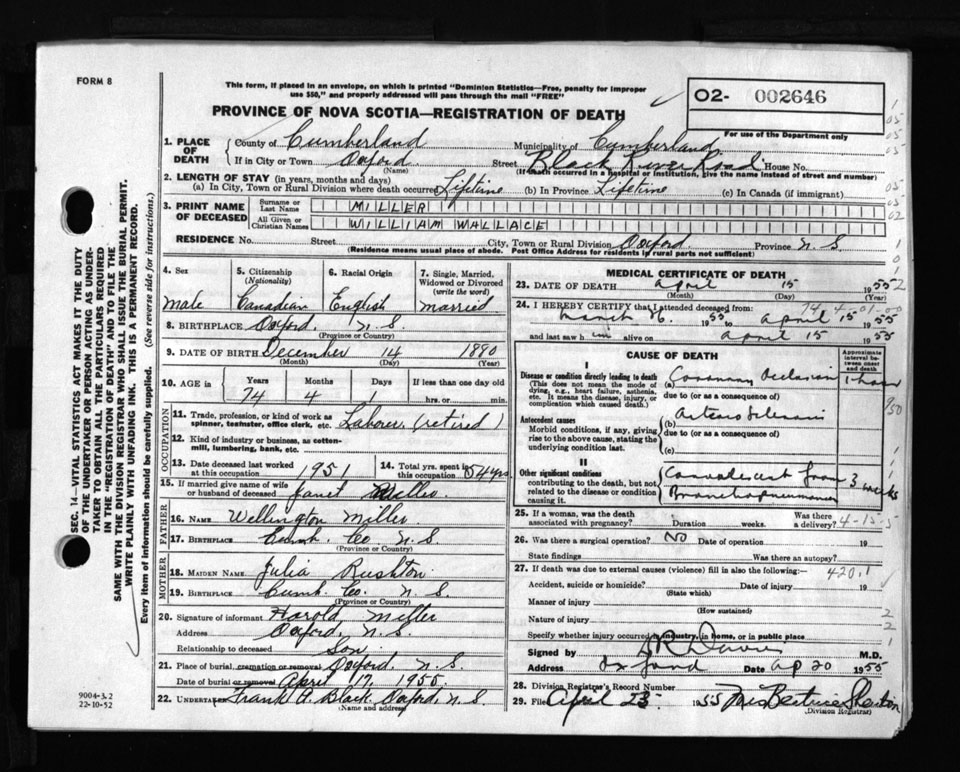 FORM 8
This form, if placed in an envelope, on which is printed "Dominion Statistics—Free, penalty for improper
use $50," and properly addressed will pass through the mail "FREE"
PROVINCE OF NOVA SCOTIA—REGISTRATION OF DEATH
02- 002646
For use of the Department only
1. PLACE OF DEATH County of Cumberland Municipality of Cumberland
If in City or Town Oxford Street Black River Road House No.
(Name) (If death occurred in a hospital or institution, give the name instead of street and number)
2. LENGTH OF STAY (in years, months and days)
(a) In City, Town or Rural Division where death occurred Lifetime (b) In Province Lifetime (c) In Canada (if immigrant)
3. PRINT NAME OF DECEASED Surname or Last Name MILLER
All Given or Christian Names WILLIAM WALLACE
RESIDENCE No. Street City, Town or Rural Division Oxford Province N.S.
(Residence means usual place of abode. Post Office Address for residents in rural parts not sufficient)
4. Sex 5. Citizenship (Nationality) 6. Racial Origin 7. Single, Married, Widowed or Divorced (write the word)
Male Canadian English Married
8. BIRTHPLACE Oxford, N.S.
(Province or Country)
9. DATE OF BIRTH December 14 1880
(Month) (Day) (Year)
10. AGE in Years Months Days If less than one day old
74 4 1 hrs. or min.
OCCUPATION
11. Trade, profession, or kind of work as spinner, teamster, office clerk, etc. Laborer (retired)
12. Kind of industry or business, as cotton-mill, lumbering, bank, etc.
13. Date deceased last worked at this occupation 1951 14. Total yrs. spent in this occupation 54 yrs
15. If married give name of wife or husband of deceased Janet Miller
FATHER
16. NAME Wellington Miller
17. BIRTHPLACE Cumb. Co. N.S.
(Province or Country)
MOTHER
18. MAIDEN NAME Julia Rushton
19. BIRTHPLACE Cumb. Co. N.S.
(Province or Country)
20. Signature of informant Harold Miller
Address Oxford, N.S.
Relationship to deceased Son
21. Place of burial, cremation or removal Oxford, N.S.
Date of burial or removal April 17, 1955.
22. UNDERTAKER Frank A. Black, Oxford, N.S.
(Name and address)
MEDICAL CERTIFICATE OF DEATH
23. DATE OF DEATH April 15 1955
(Month) (Day) (Year)
24. I HEREBY CERTIFY that I attended deceased from:
March 16 1955 to April 15 1955
and last saw him alive on April 15 1955
CAUSE OF DEATH
Approximate interval between onset and death
I
Disease or condition directly leading to death (a) Coronary Occlusion 1 hour
(This does not mean the mode of dying, e.g., heart failure, asthenia, etc. It means the disease, injury, or complication which caused death.)
due to (or as a consequence of)
Antecedent causes (b) Arterio Sclerosis
Morbid conditions, if any, giving rise to the above cause, stating the underlying condition last.
due to (or as a consequence of)
(c)
II
Other significant conditions contributing to the death, but not related to the disease or condition causing it.
Convalescent from 3 weeks
Bronchopneumonia
25. If a woman, was the death associated with pregnancy? Duration weeks. Was there a delivery?
4-15-5
26. Was there a surgical operation? No Date of operation 19
State findings Was there an autopsy?
27. If death was due to external causes (violence) fill in also the following:— 420.1
Accident, suicide or homicide? Date of injury 19
(State which)
Manner of injury
(How sustained)
Nature of injury
Specify whether injury occurred in industry, in home, or in public place
Signed by M.D.
Address Oxford Date Ap 20 1955
28. Division Registrar's Record Number
29. Filed April 23 1955 Mrs Beatrice Shenton
(Division Registrar)
SEC. 14—VITAL STATISTICS ACT MAKES IT THE DUTY
OF THE UNDERTAKER OR PERSON ACTING AS UNDER-
TAKER TO OBTAIN ALL THE PARTICULARS REQUIRED
IN THE "REGISTRATION OF DEATH" AND TO FILE THE
SAME WITH THE DIVISION REGISTRAR WHO SHALL ISSUE THE BURIAL PERMIT.
WRITE PLAINLY WITH UNFADING INK. THIS IS A PERMANENT RECORD.
Every item of information should be carefully supplied. (See reverse side for instructions.)
9004-3.2
22-10-52